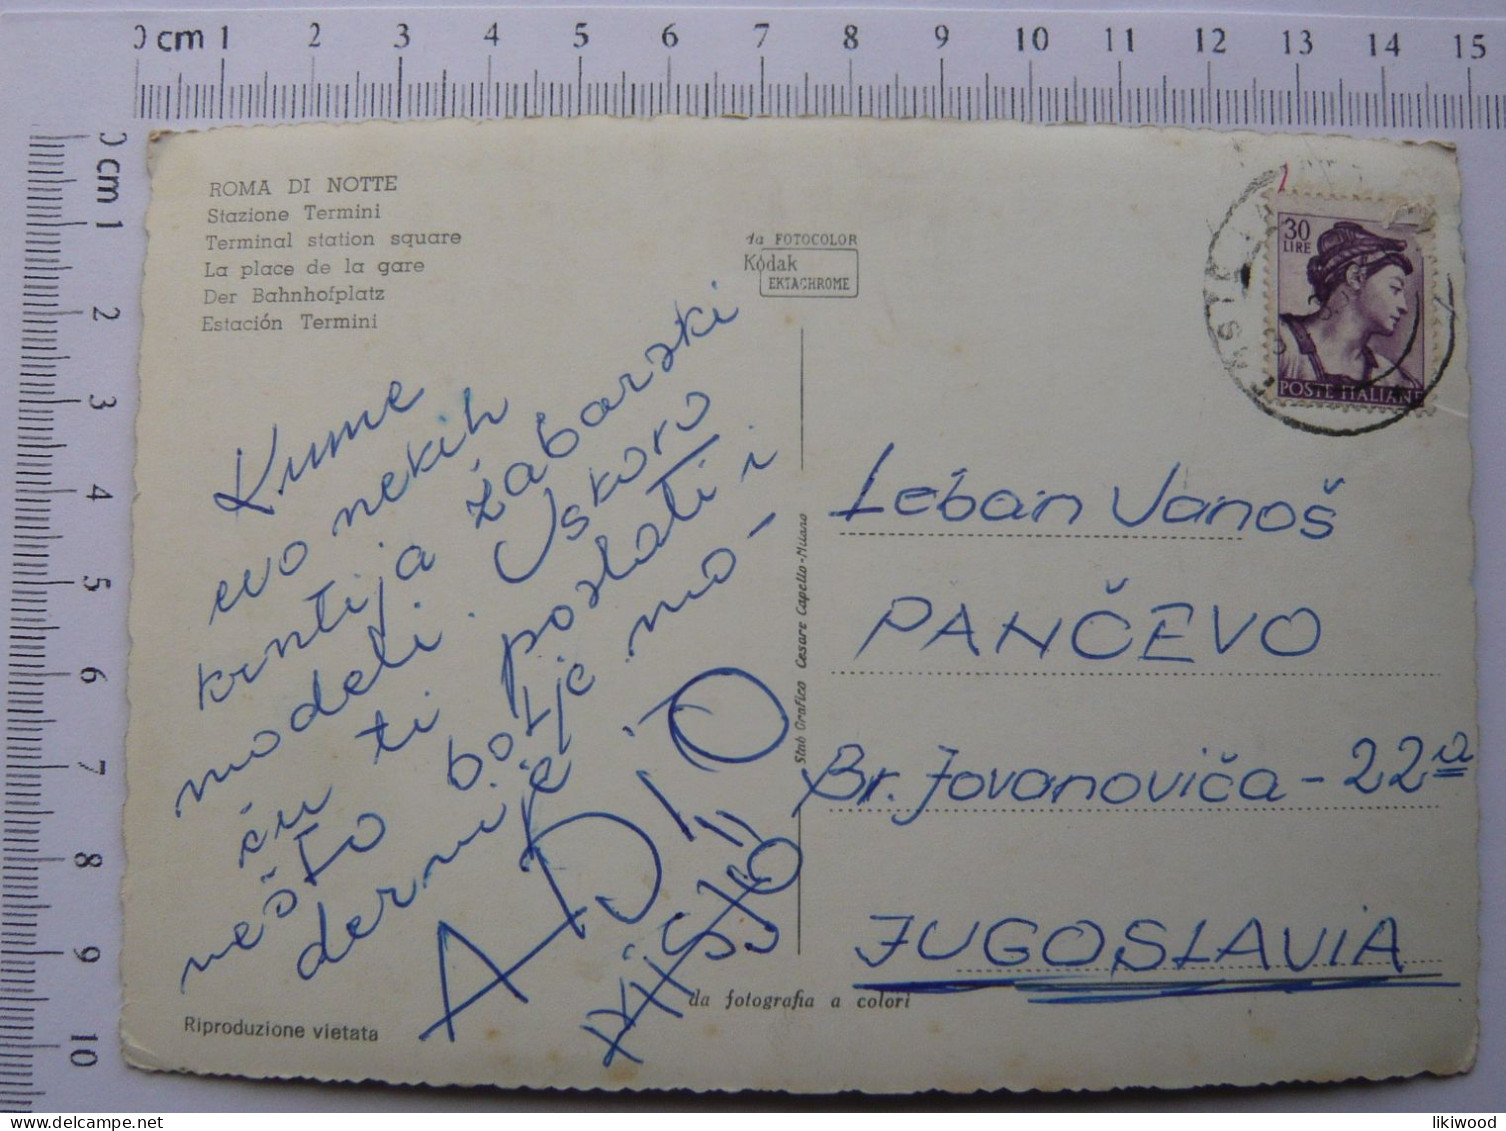 0 cm 1 2 3 4 5 6 7 8 9 10 11 12 13 14 15
0 cm 1 2 3 4 5 6 7 8 9 10
ROMA DI NOTTE
Stazione Termini
Terminal station square
La place de la gare
Der Bahnhofplatz
Estación Termini
da FOTOCOLOR
Kodak
EKTACHROME
30
LIRE
POSTE ITALIANE
Kume
evo nekih
žabarski
modeli. Uskoro
ću ti poslati i
nešto bolje mo-
dernije
ADIO
Leban Janoš
PANČEVO
Br. Jovanoviča - 22a
JUGOSLAVIA
Stab Grafico Cesare Capello - Milano
da fotografia a colori
Riproduzione vietata
likiwood